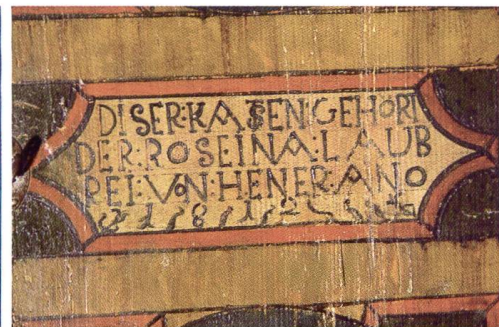 DISER:KASTEN:GEHÖRT
DER:ROSEINA:LAUB
REI:VON:HENER:ANO
1781